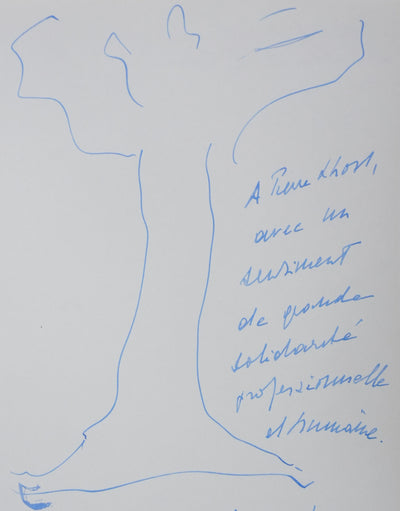 A Pierre Khost,
avec un
sentiment
de grande
solidarité
professionnelle
et humaine.